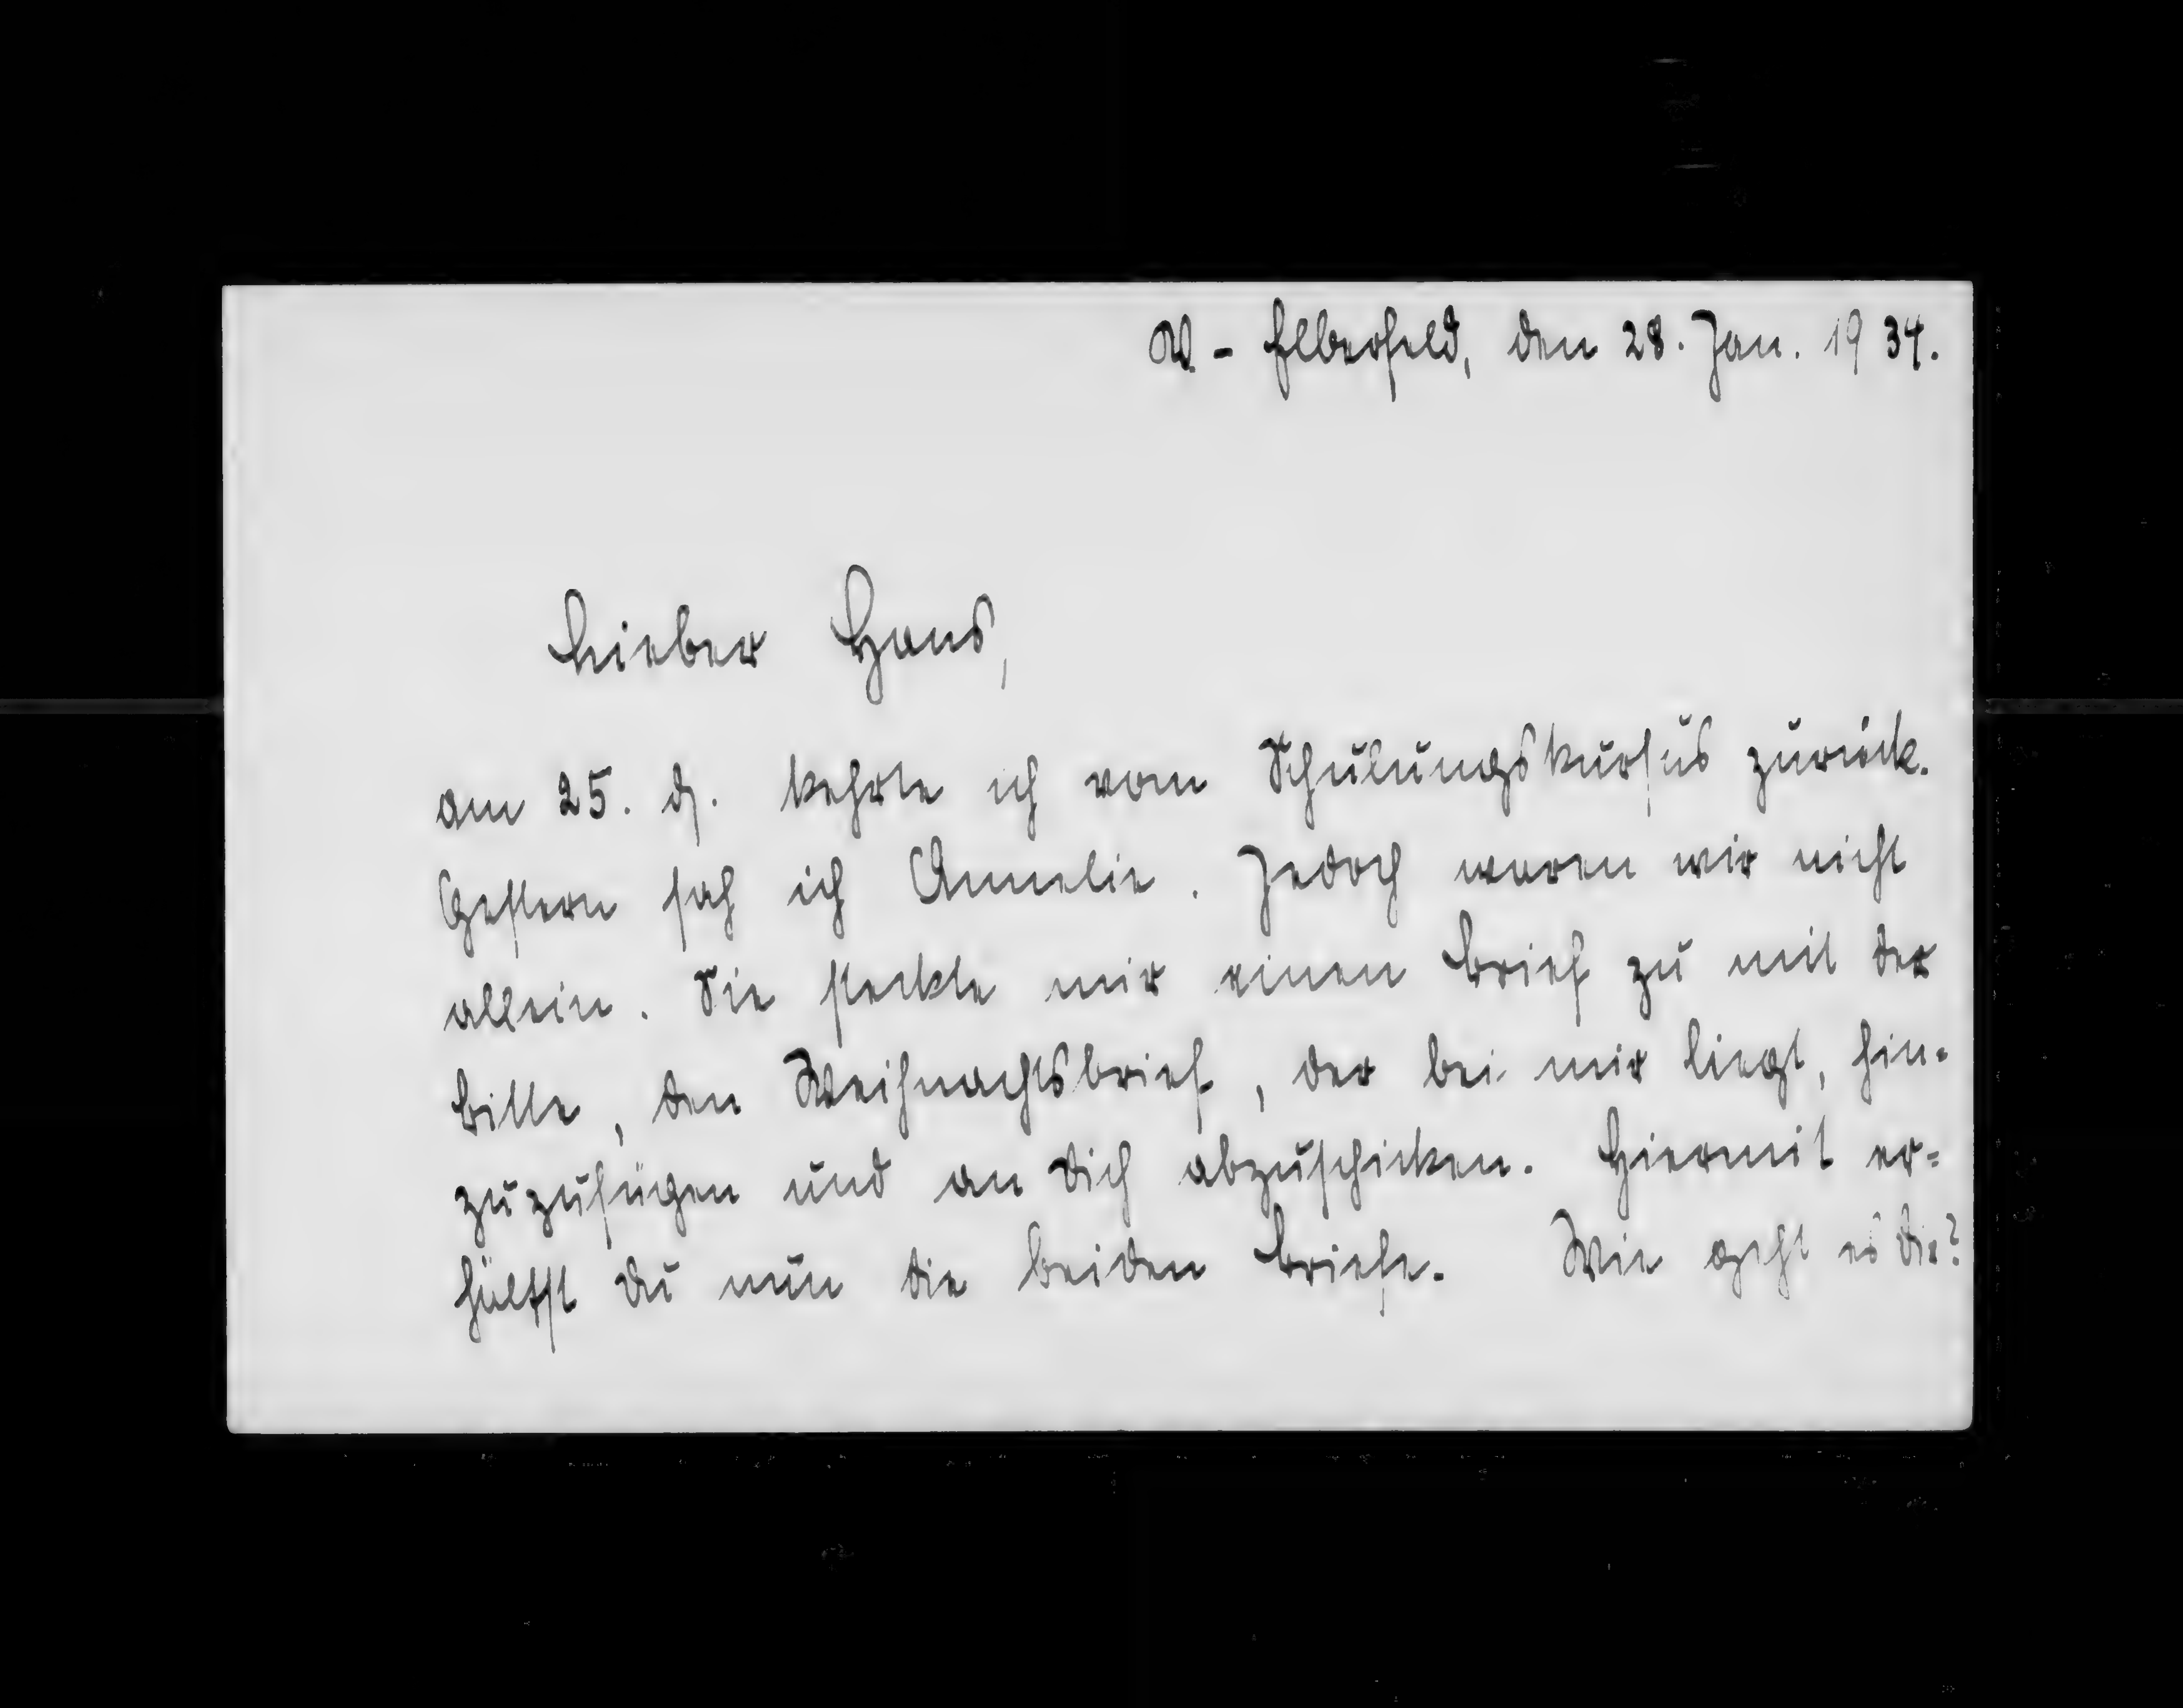 W - Elberfeld, den 28. Jan. 1934.
Lieber Hans,
am 25. d. kehrte ich vom Schulungskursus zurück.
Gestern sah ich Annelie. Jedoch waren wir nicht
allein. Sie steckte mir einen Brief zu mit der
Bitte, den Weihnachtsbrief, der bei mir liegt, hin-
zuzufügen und an Dich abzuschicken. Hiermit er=
hältst Du nun die beiden Briefe. Wie geht es Dir?